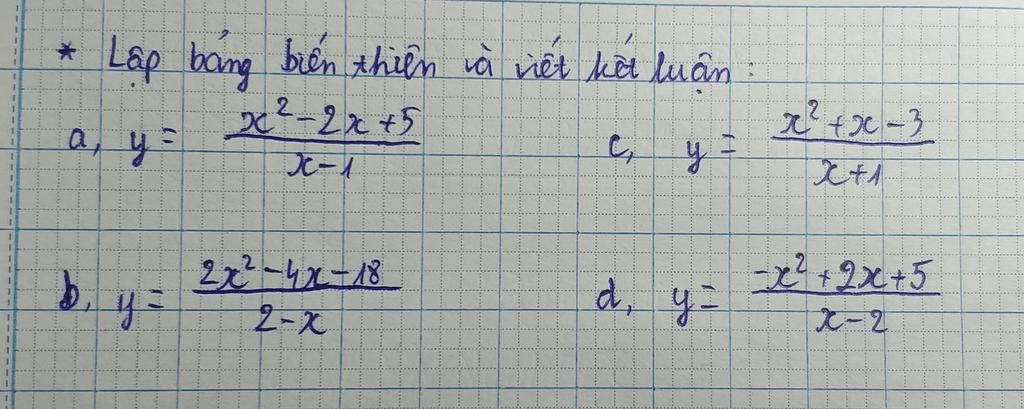 * Lập bảng biến thiên và viết kết luận:
a, y = \frac{x^2-2x+5}{x-1}
c, y = \frac{x^2+x-3}{x+1}
b, y = \frac{2x^2-4x-18}{2-x}
d, y = \frac{-x^2+2x+5}{x-2}